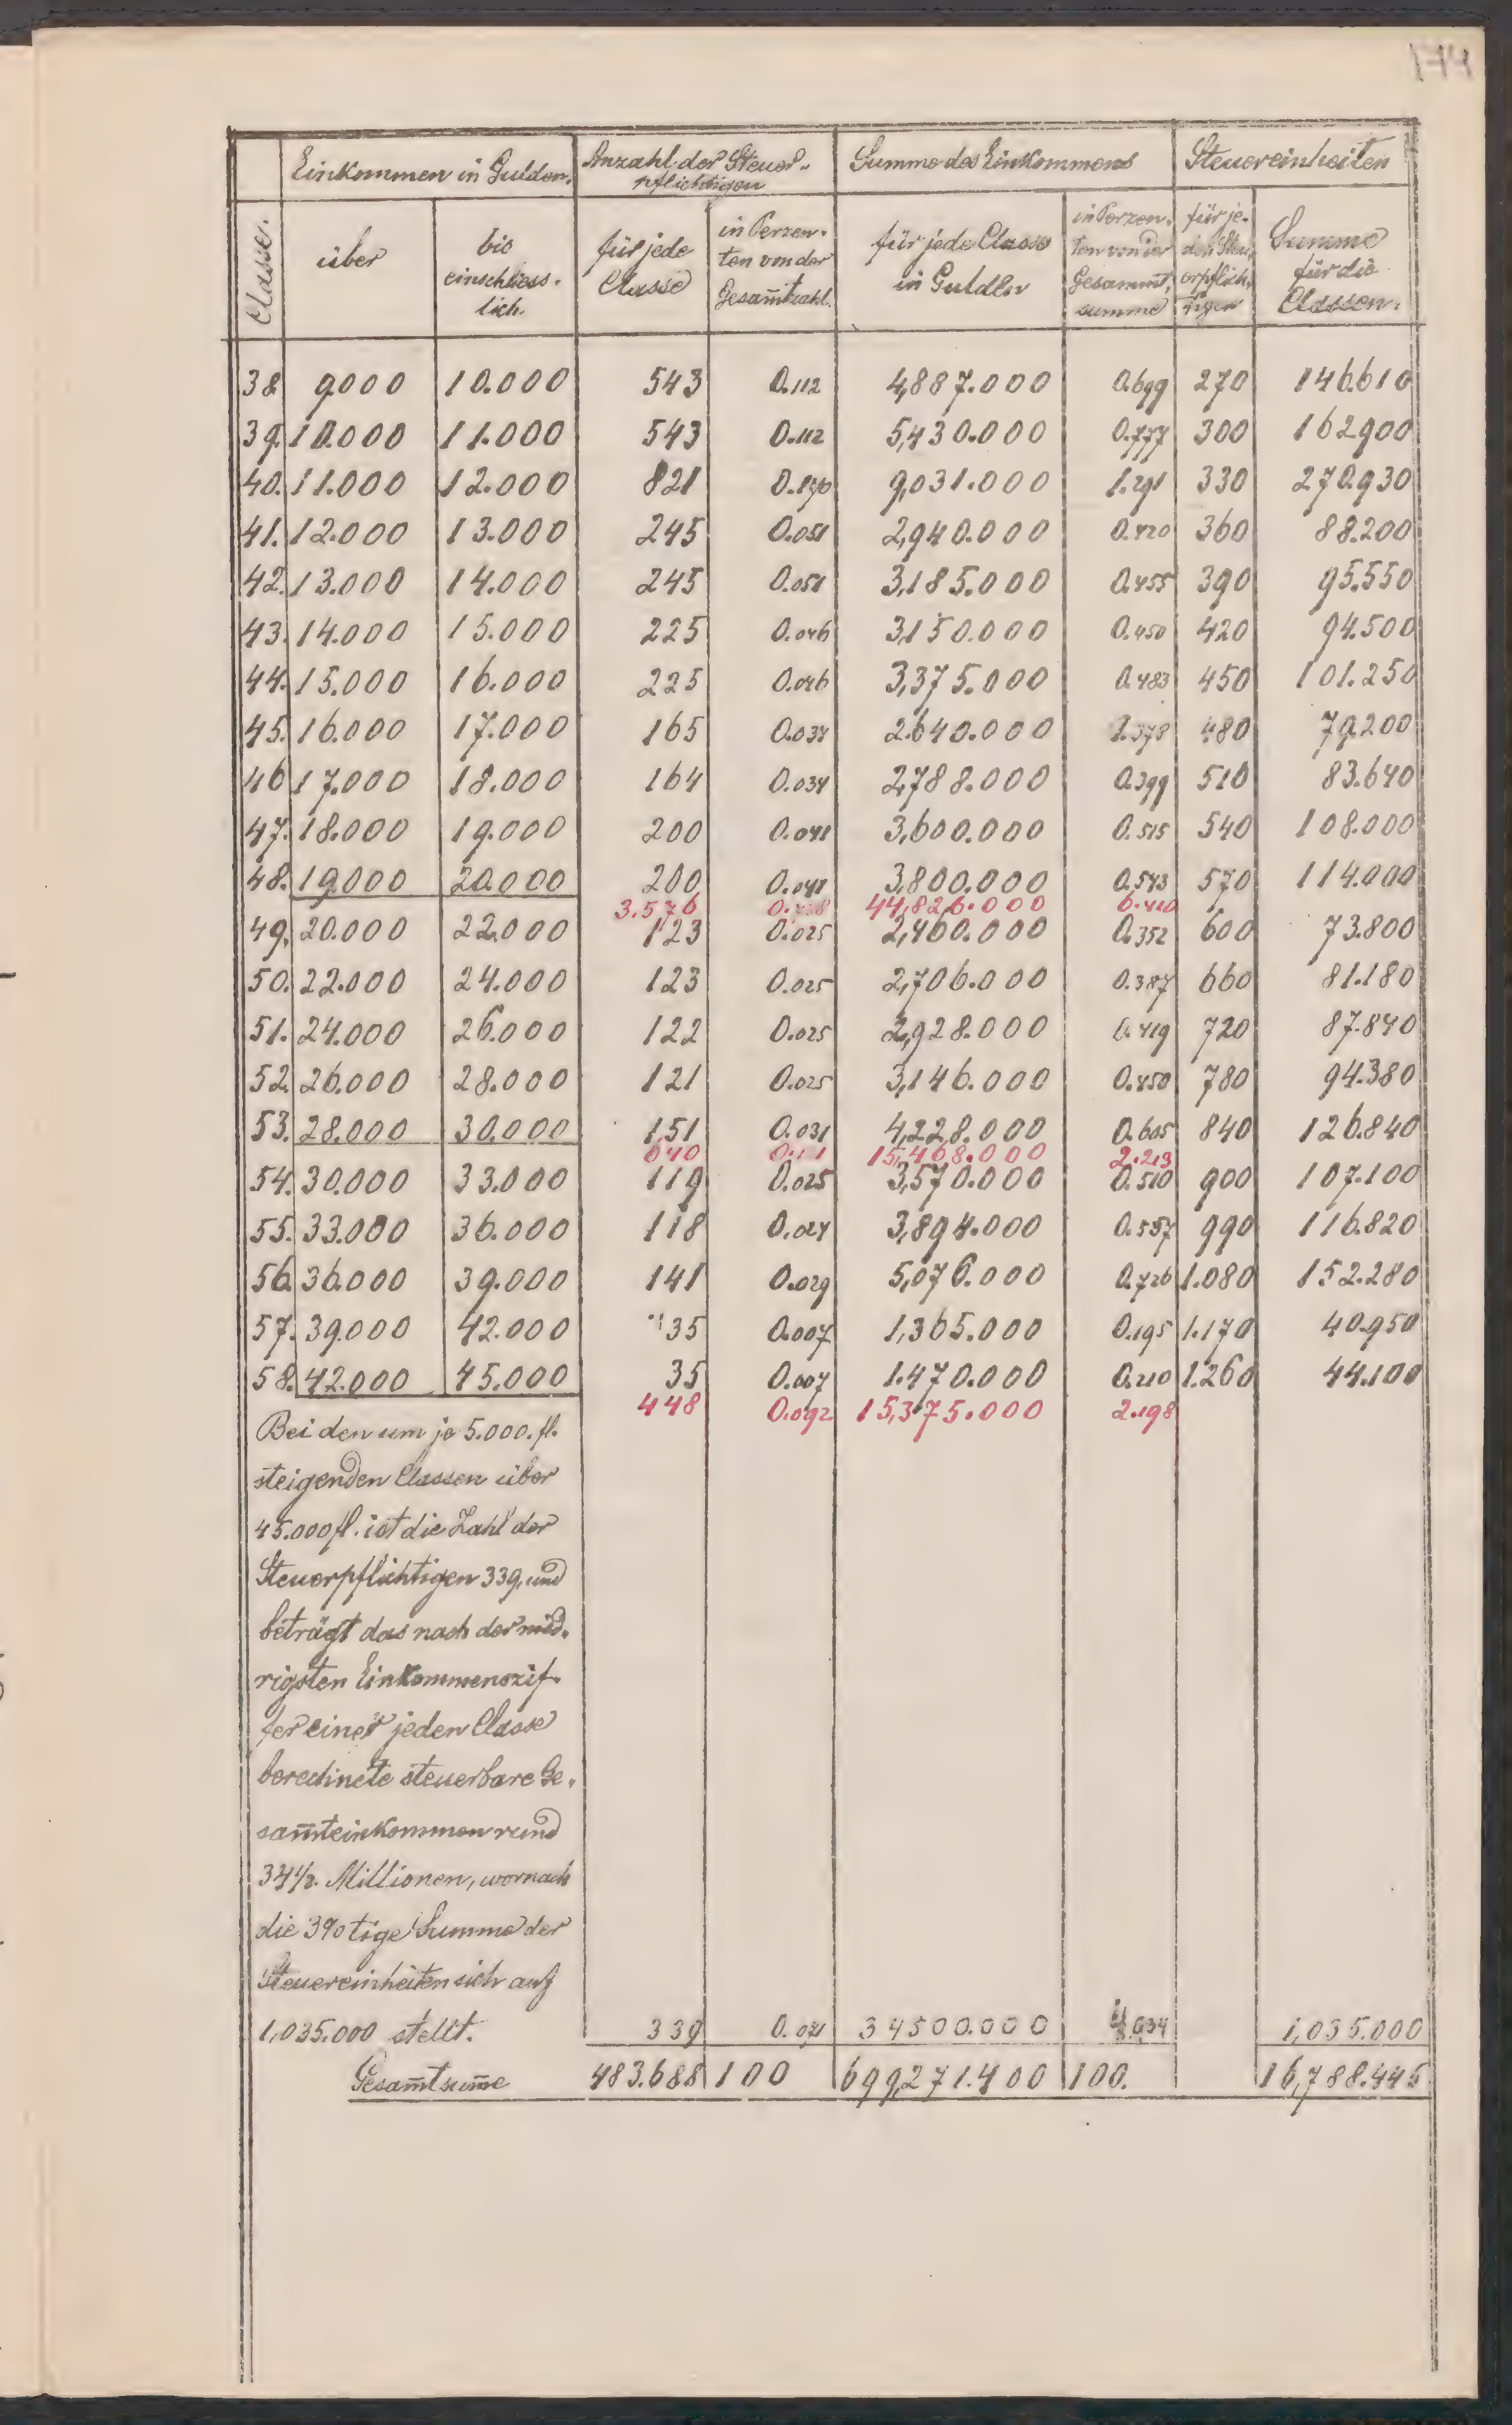 174
Einkommen in Gulden. Anzahl der Steuer- Summe des Einkommens Steuereinheiten
pflichtigen
Classe. über bis einschliess- lich. für jede Classe in Perzen- ten von der Gesam̄tzahl. für jede Classe in Gulden in Perzen- ten von der Gesammt- summe für je- den Steu- erpflich- tigen Summe für die Classen.
38 9000 10.000 543 0.112 4,887.000 0.699 270 146.610
39. 10.000 11.000 543 0.112 5,430.000 0.777 300 162.900
40. 11.000 12.000 821 0.170 9,031.000 1.291 330 270.930
41. 12.000 13.000 245 0.051 2,940.000 0.420 360 88.200
42. 13.000 14.000 245 0.051 3,185.000 0.455 390 95.550
43. 14.000 15.000 225 0.046 3,150.000 0.450 420 94.500
44. 15.000 16.000 225 0.046 3,375.000 0.483 450 101.250
45. 16.000 17.000 165 0.034 2.640.000 0.378 480 79.200
46 17.000 18.000 164 0.034 2,788.000 0.399 510 83.640
47. 18.000 19.000 200 0.041 3,600.000 0.515 540 108.000
48. 19.000 20.000 200 0.041 3,800.000 0.543 570 114.000
3.576 44,826.000 6.410
49. 20.000 22.000 123 0.025 2,460.000 0.352 600 73.800
50. 22.000 24.000 123 0.025 2,706.000 0.387 660 81.180
51. 24.000 26.000 122 0.025 2,928.000 0.419 720 87.840
52. 26.000 28.000 121 0.025 3,146.000 0.450 780 94.380
53. 28.000 30.000 151 0.031 4,228.000 0.605 840 126.840
640 15,468.000 2.213
54. 30.000 33.000 119 0.025 3,570.000 0.510 900 107.100
55. 33.000 36.000 118 0.024 3,894.000 0.557 990 116.820
56. 36.000 39.000 141 0.029 5,076.000 0.726 1.080 152.280
57. 39.000 42.000 35 0.007 1,365.000 0.195 1.170 40.950
58. 42.000 45.000 35 0.007 1.470.000 0.210 1.260 44.100
448 0.092 15,375.000 2.198
Bei den um je 5.000. fl.
steigenden Classen über
45.000 fl. ist die Zahl der
Steuerpflichtigen 339, und
beträgt das nach der nied-
rigsten Einkommenszif-
fer einer jeden Classe
berechnete steuerbare Ge-
sam̄teinkommen rund
34 1/2. Millionen, wornach
die 3%tige Summe der
Steuereinheiten sich auf
1,035.000 stellt. 339 0.071 34500.000 1,035.000
Gesam̄tsum̄e 483.688 100 699,271.400 100. 16,788.445